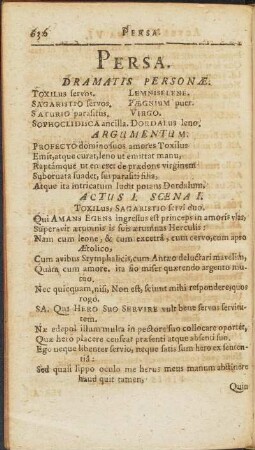 636 PERSA.
PERSA.
DRAMATIS PERSONÆ.
TOXILUS servos. LEMNISELENE.
SAGARISTIO servos. PÆGNIUM puer.
SATURIO parasitus. VIRGO.
SOPHOCLIDISCA ancilla. DORDALUS leno.
ARGUMENTUM.
PROFECTO domino suos amores Toxilus
Emit, atque curat, leno ut emittat manu,
Raptamque ut emeret de prædone virginem
Subornata suadet, sui parasiti filia,
Atque ita intricatum ludit potans Dordalum.
ACTUS I. SCENA I.
TOXILUS, SAGARISTIO servi duo.
Qui AMANS EGENS ingressus est princeps in amoris vias,
Superavit ærumnis is suis ærumnas Herculis:
Nam cum leone, & cum excetra, cum cervo, cum apro
Ætolico,
Cum avibus Stymphalicis, cum Antæo deluctari mavelim,
Quàm cum amore, ita fio miser quærendo argento mu-
tuo,
Nec quicquam, nisi, Non est, sciunt mihi respondere quos
rogo.
SA. Qui HERO SUO SERVIRE vult bene servos servitu-
tem.
Næ edepol illum multa in pectore suo collocare oportet,
Quæ hero placere censeat præsenti atque absenti suo,
Ego neque libenter servio, neque satis sum hero ex senten-
tiâ:
Sed quasi lippo oculo me herus meus manum abstinere
haud quit tamen,
Quin